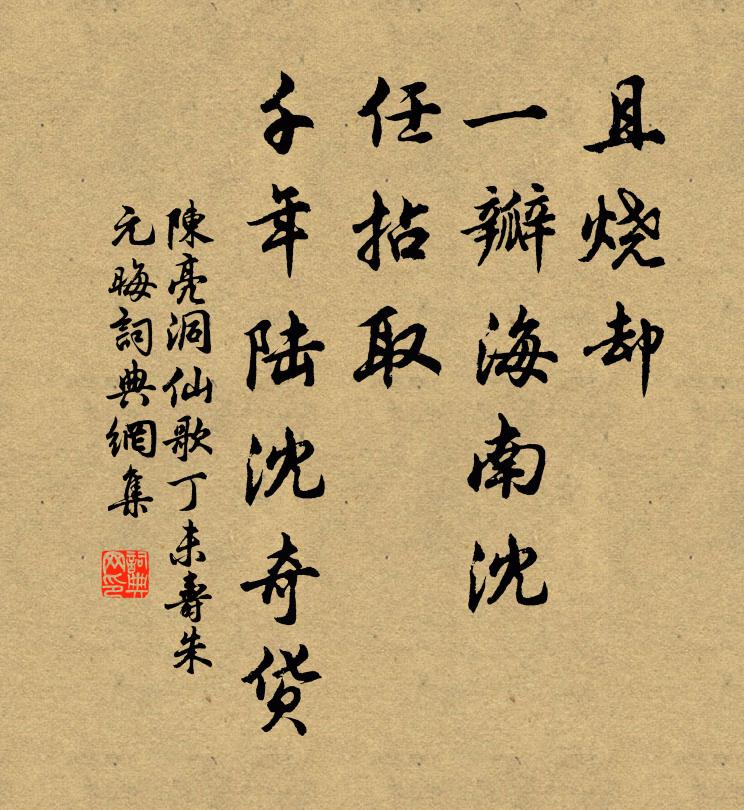 且烧却
一瓣海南沈
任拈取
千年陆沈奇货
陳亮洞仙歌丁未壽朱
元晦詞典網集
詞典
网印